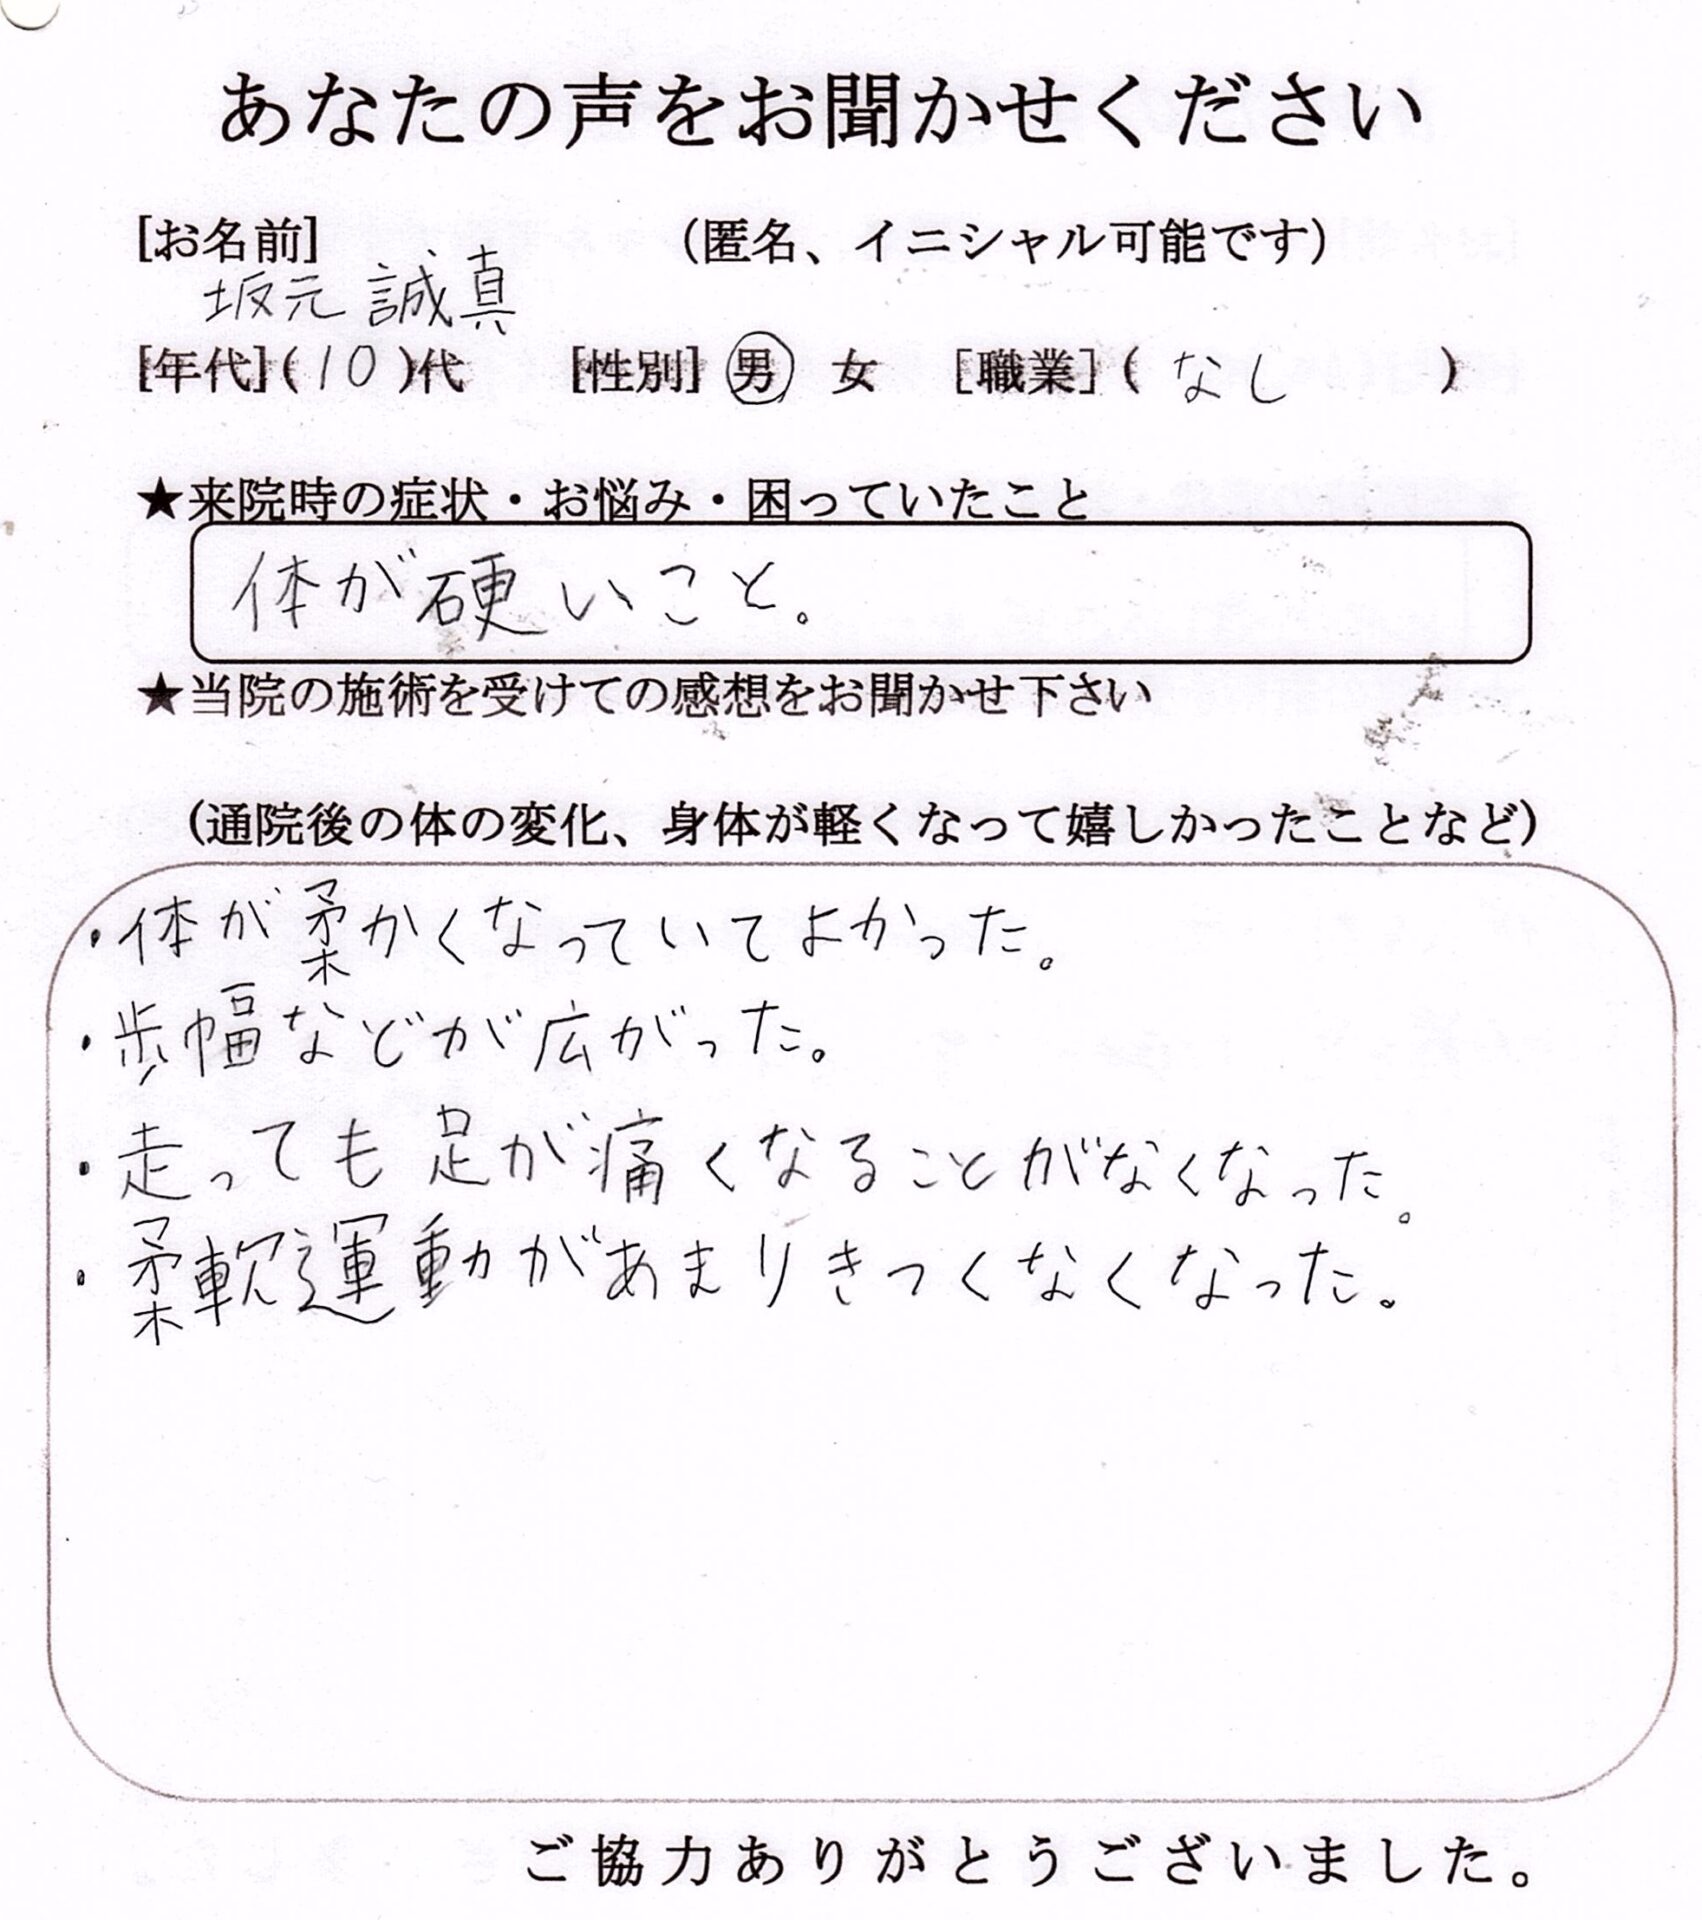 あなたの声をお聞かせください
[お名前] (匿名、イニシャル可能です)
坂元 誠真
[年代](10)代 [性別] 男 女 [職業](なし)
★来院時の症状・お悩み・困っていたこと
体が硬いこと。
★当院の施術を受けての感想をお聞かせ下さい
(通院後の体の変化、身体が軽くなって嬉しかったことなど)
・体が柔かくなっていてよかった。
・歩幅などが広がった。
・走っても足が痛くなることがなくなった。
・柔軟運動があまりきつくなくなった。
ご協力ありがとうございました。